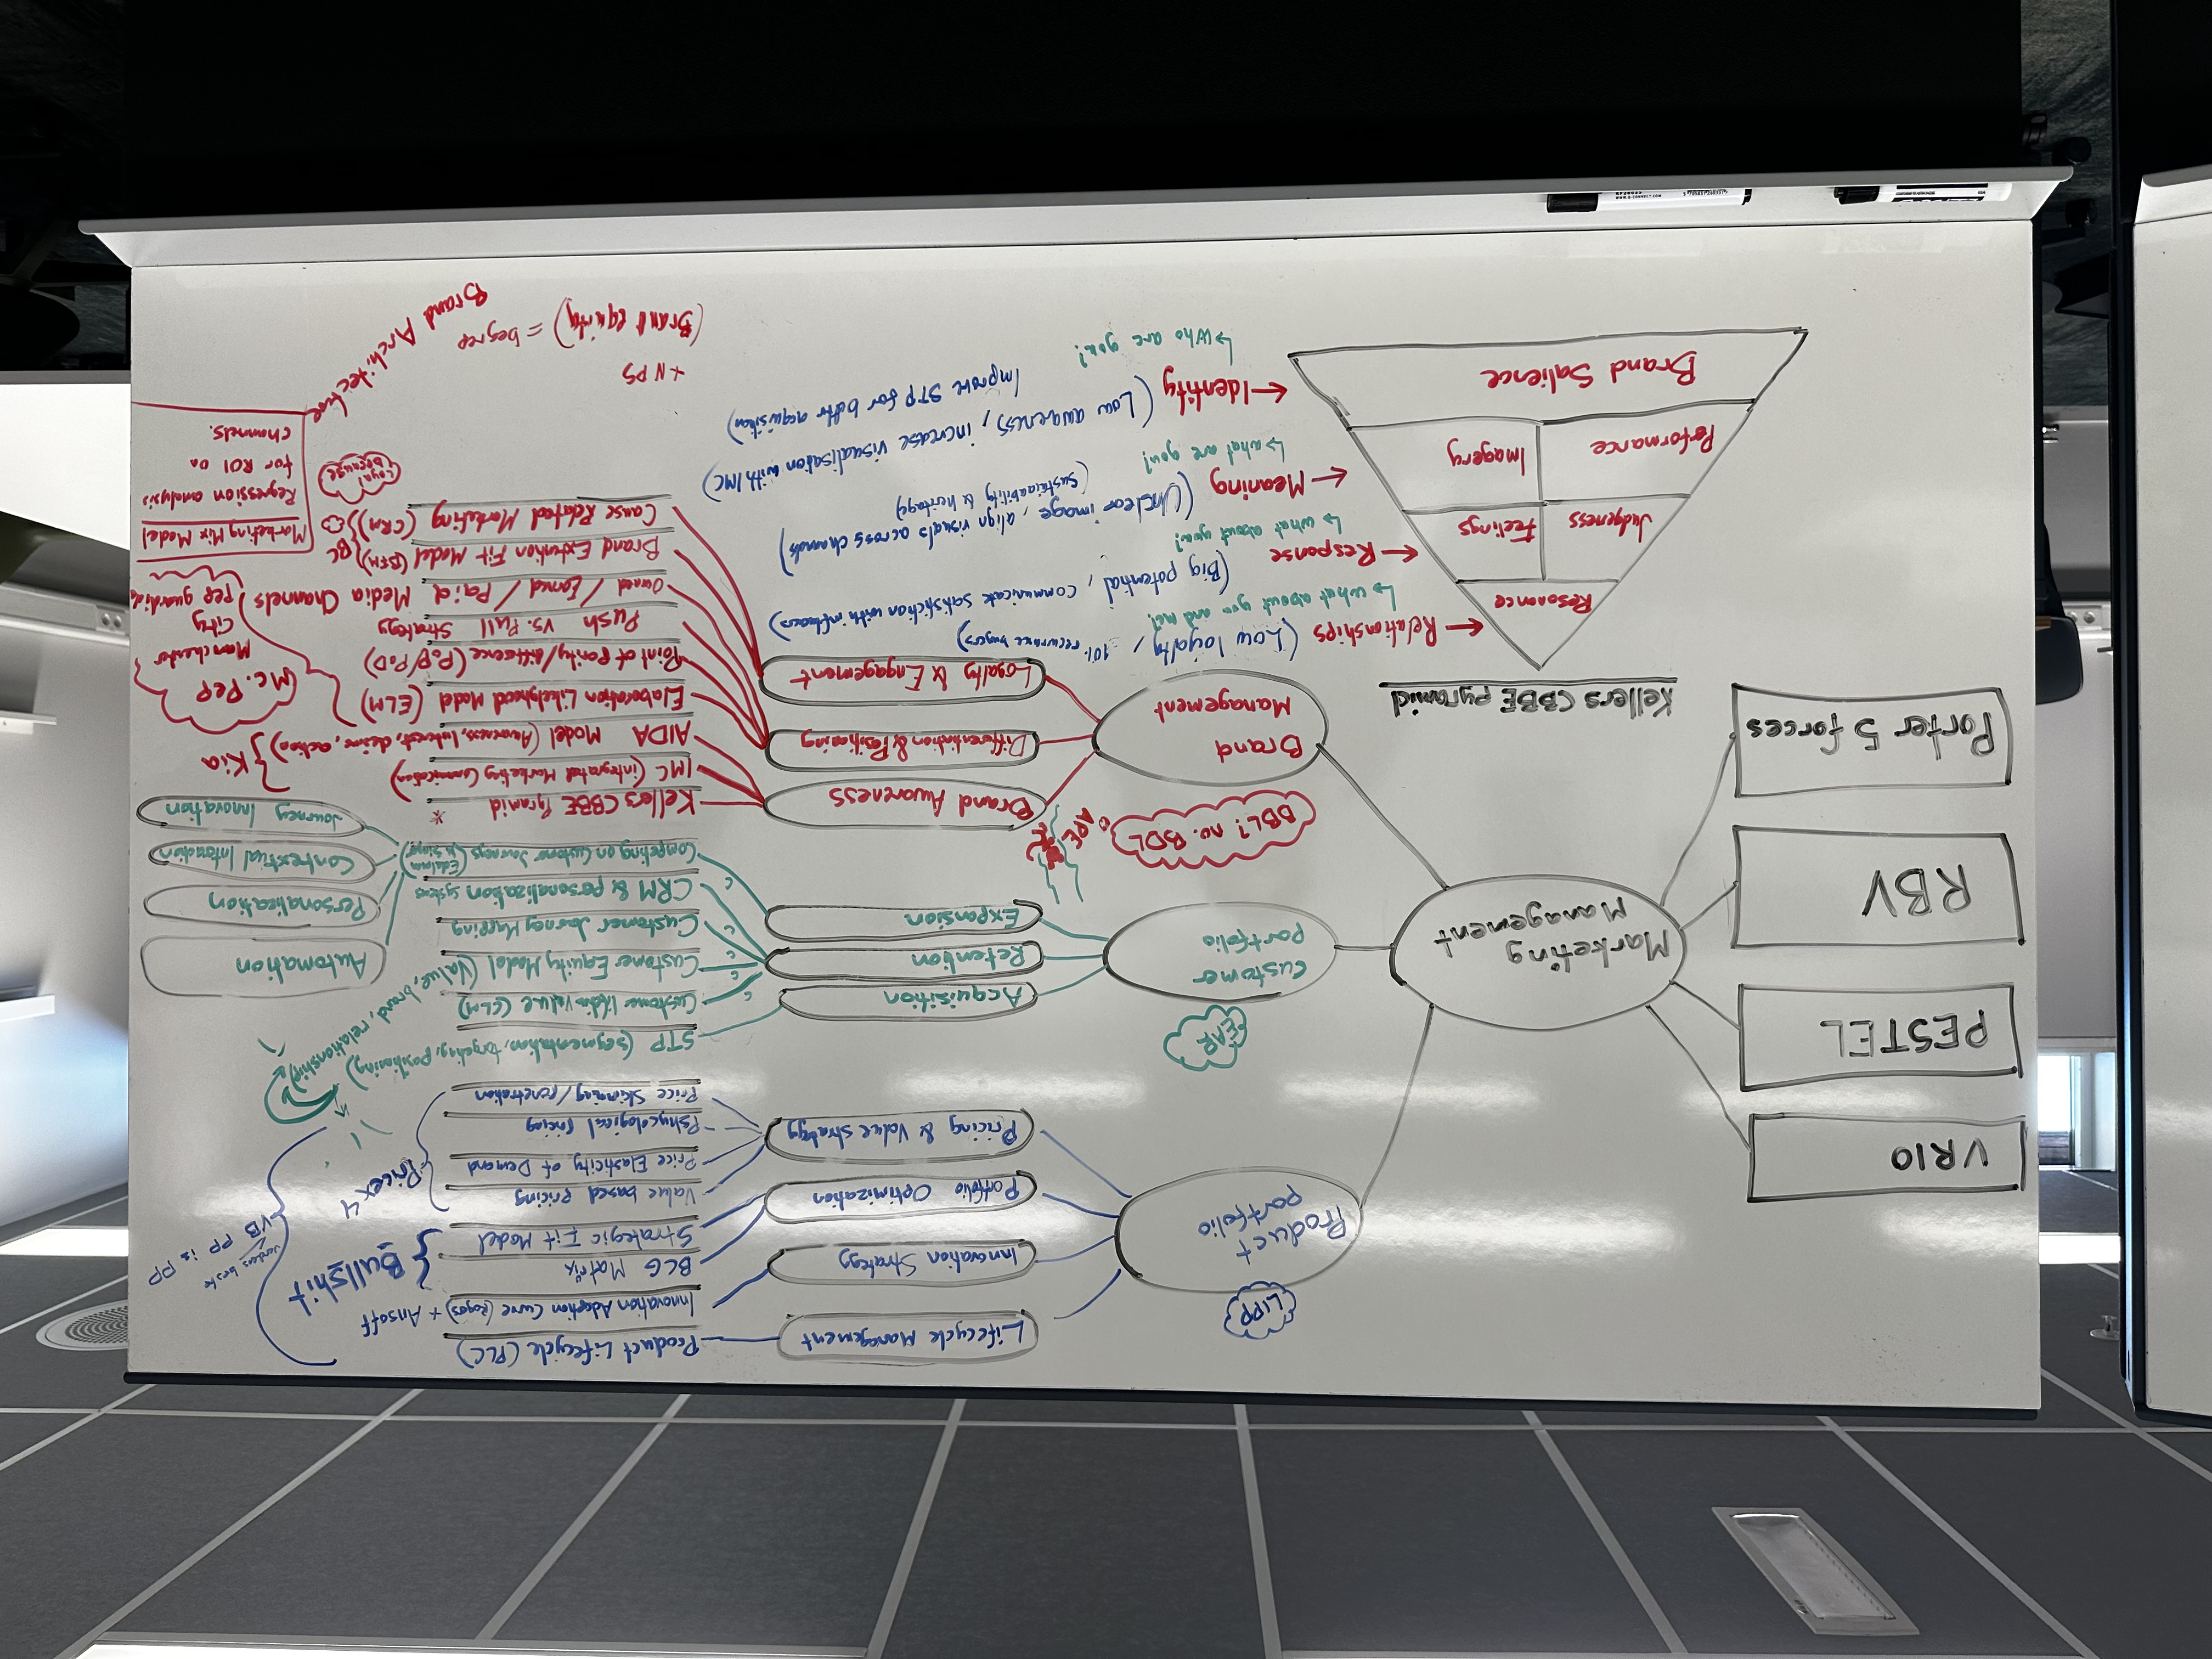 VRIO
PESTEL
RBV
Porter 5 forces
Marketing
Management
LIPP
Product
portfolio
Lifecycle Management
Innovation Strategy
Portfolio Optimization
Pricing & Value strategy
Product Lifecycle (PLC)
Innovation Adoption Curve (Rogers) + Ansoff
BCG Matrix
Strategic Fit Model
Bullshit
Value based pricing
Price Elasticity of Demand
Pshycological pricing
Price Skimming/penetration
Pricex4
verdens beste
VB PP is PP
EAR
Customer
portfolio
Acquisition
Retention
Expansion
STP (segmentation, targeting, positioning)
Customer lifetim value (CLM)
Customer Equity Model (Value, brand, relationship)
Customer Journey Mapping
CRM & personalization systems
Competing on Customer Journeys (Edelman & Singer)
C
C
C
C
C
Automation
Personalization
Contextual Interaction
Journey Innovation
BBL? no. BDL
APE
Brand
Management
Brand Awareness
Differentiation & Positioning
Loyalty & Engagement
Kellers CBBE Pyramid *
IMC (integrated Marketing Commication)
AIDA Model (Awareness, Interest, desire, action)
Kia
Elaboration Likelyhood Model (ELM)
Point of parity/difference (PoP/PoD)
Push vs. Pull Strategy
Owned / Earned / Paid Media Channels
Mc. Pep
Manchester
City
pep guardiola
Brand Extention Fit Model (BFM)
Cause Related Marketing (CRM)
BC
Loyal
because
Marketing Mix Model
Regression analysis
for ROI on
channels.
Brand Architecture
+ NPS
(Brand equity) = begrep
Kellers CBBE pyramid
Resonance
Judgeness
Feelings
Performance
Imagery
Brand Salience
← Relationships (Low loyalty, 10% recurrence buyers)
↳ what about you and me?
← Response (Big potential, communicate satisfiction with influncers)
↳ what about you?
← Meaning (Unclear image, align visuals across channels)
(sustainability & heritage)
↳ what are you?
← Identity (Low awareness, increase visualisation with IMC)
Improve STP for better acquisition)
↳ Who are you?